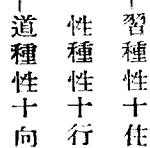 習種性十住
性種性十行
道種性十向